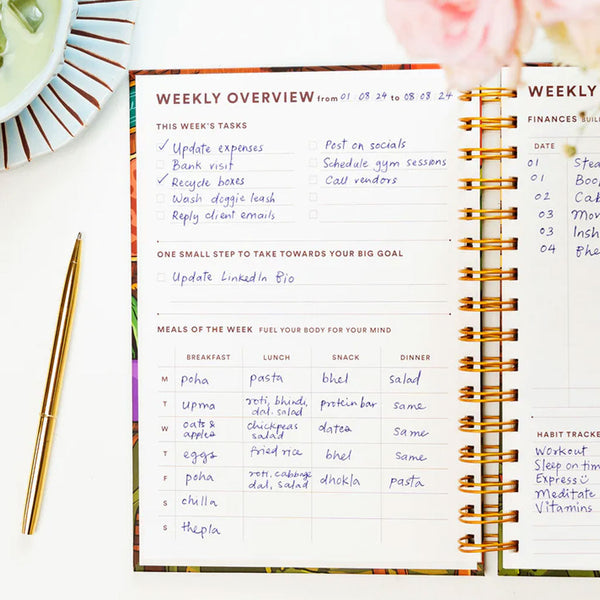 WEEKLY OVERVIEW from 01 08 24 to 08 08 24
THIS WEEK'S TASKS
Update expenses
Bank visit
Recycle boxes
Wash doggie leash
Reply client emails
Post on socials
Schedule gym sessions
Call vendors
ONE SMALL STEP TO TAKE TOWARDS YOUR BIG GOAL
Update LinkedIn Bio
MEALS OF THE WEEK FUEL YOUR BODY FOR YOUR MIND
BREAKFAST LUNCH SNACK DINNER
M poha pasta bhel salad
T upma roti, bhindi, dal, salad protein bar same
W oats & apples chickpeas salad dates same
T eggs fried rice bhel same
F poha roti, cabbage dal, salad dhokla pasta
S chilla
S thepla
WEEKLY
FINANCES
DATE
01
01
02 Cab
03
03
04
HABIT
Workout
Sleep on time
Express
Meditate
Vitamins